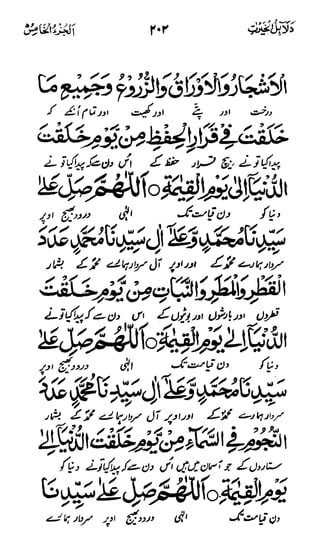 دلائل الخیرات ۲۰۲ الجزء الخامس
الْاَشْجَارِ وَالْاَوْرَاقِ وَالزُّرُوْعِ وَجَمِيْعِ مَا
درخت اور پتے اور کھیت اور تمام اُسکے کہ
خَلَقْتَ فِيْ قَرَارِ الْحِفْظِ مِنْ يَوْمِ خَلَقْتَ
پیدا کیا تونے بیچ قرار حفظ کے اُس دن سے کہ پیدا کیا تونے
الدُّنْيَآ اِلٰى يَوْمِ الْقِيٰمَةِ ○ اَللّٰهُمَّ صَلِّ عَلٰى
دنیا کو دن قیامت تک الٰہی درود بھیج اوپر
سَيِّدِنَا مُحَمَّدٍ وَّعَلٰٓى اٰلِ سَيِّدِنَا مُحَمَّدٍ عَدَدَ
سردار ہمارے محمدؐ کے اور اوپر آل سردار ہمارے محمدؐ کے بشمار
الْقَطْرِ وَالْمَطَرِ وَالنَّبَاتِ مِنْ يَّوْمِ خَلَقْتَ
قطروں اور بارشوں اور بوٹیوں کے اس دن سے کہ پیدا کیا تونے
الدُّنْيَآ اِلٰى يَوْمِ الْقِيٰمَةِ ○ اَللّٰهُمَّ صَلِّ عَلٰى
دنیا کو دن قیامت تک الٰہی درود بھیج اوپر
سَيِّدِنَا مُحَمَّدٍ وَّعَلٰٓى اٰلِ سَيِّدِنَا مُحَمَّدٍ عَدَدَ
سردار ہمارے محمدؐ کے اور اوپر آل سردار ہمارے محمدؐ کے بشمار
النُّجُوْمِ فِي السَّمَآءِ مِنْ يَّوْمِ خَلَقْتَ الدُّنْيَآ اِلٰى
ستاروں کے جو آسمان میں ہیں اُس دن سے کہ پیدا کیا تونے دنیا کو
يَوْمِ الْقِيٰمَةِ ○ اَللّٰهُمَّ صَلِّ عَلٰى سَيِّدِنَا
دن قیامت تک الٰہی درود بھیج اوپر سردار ہمارے